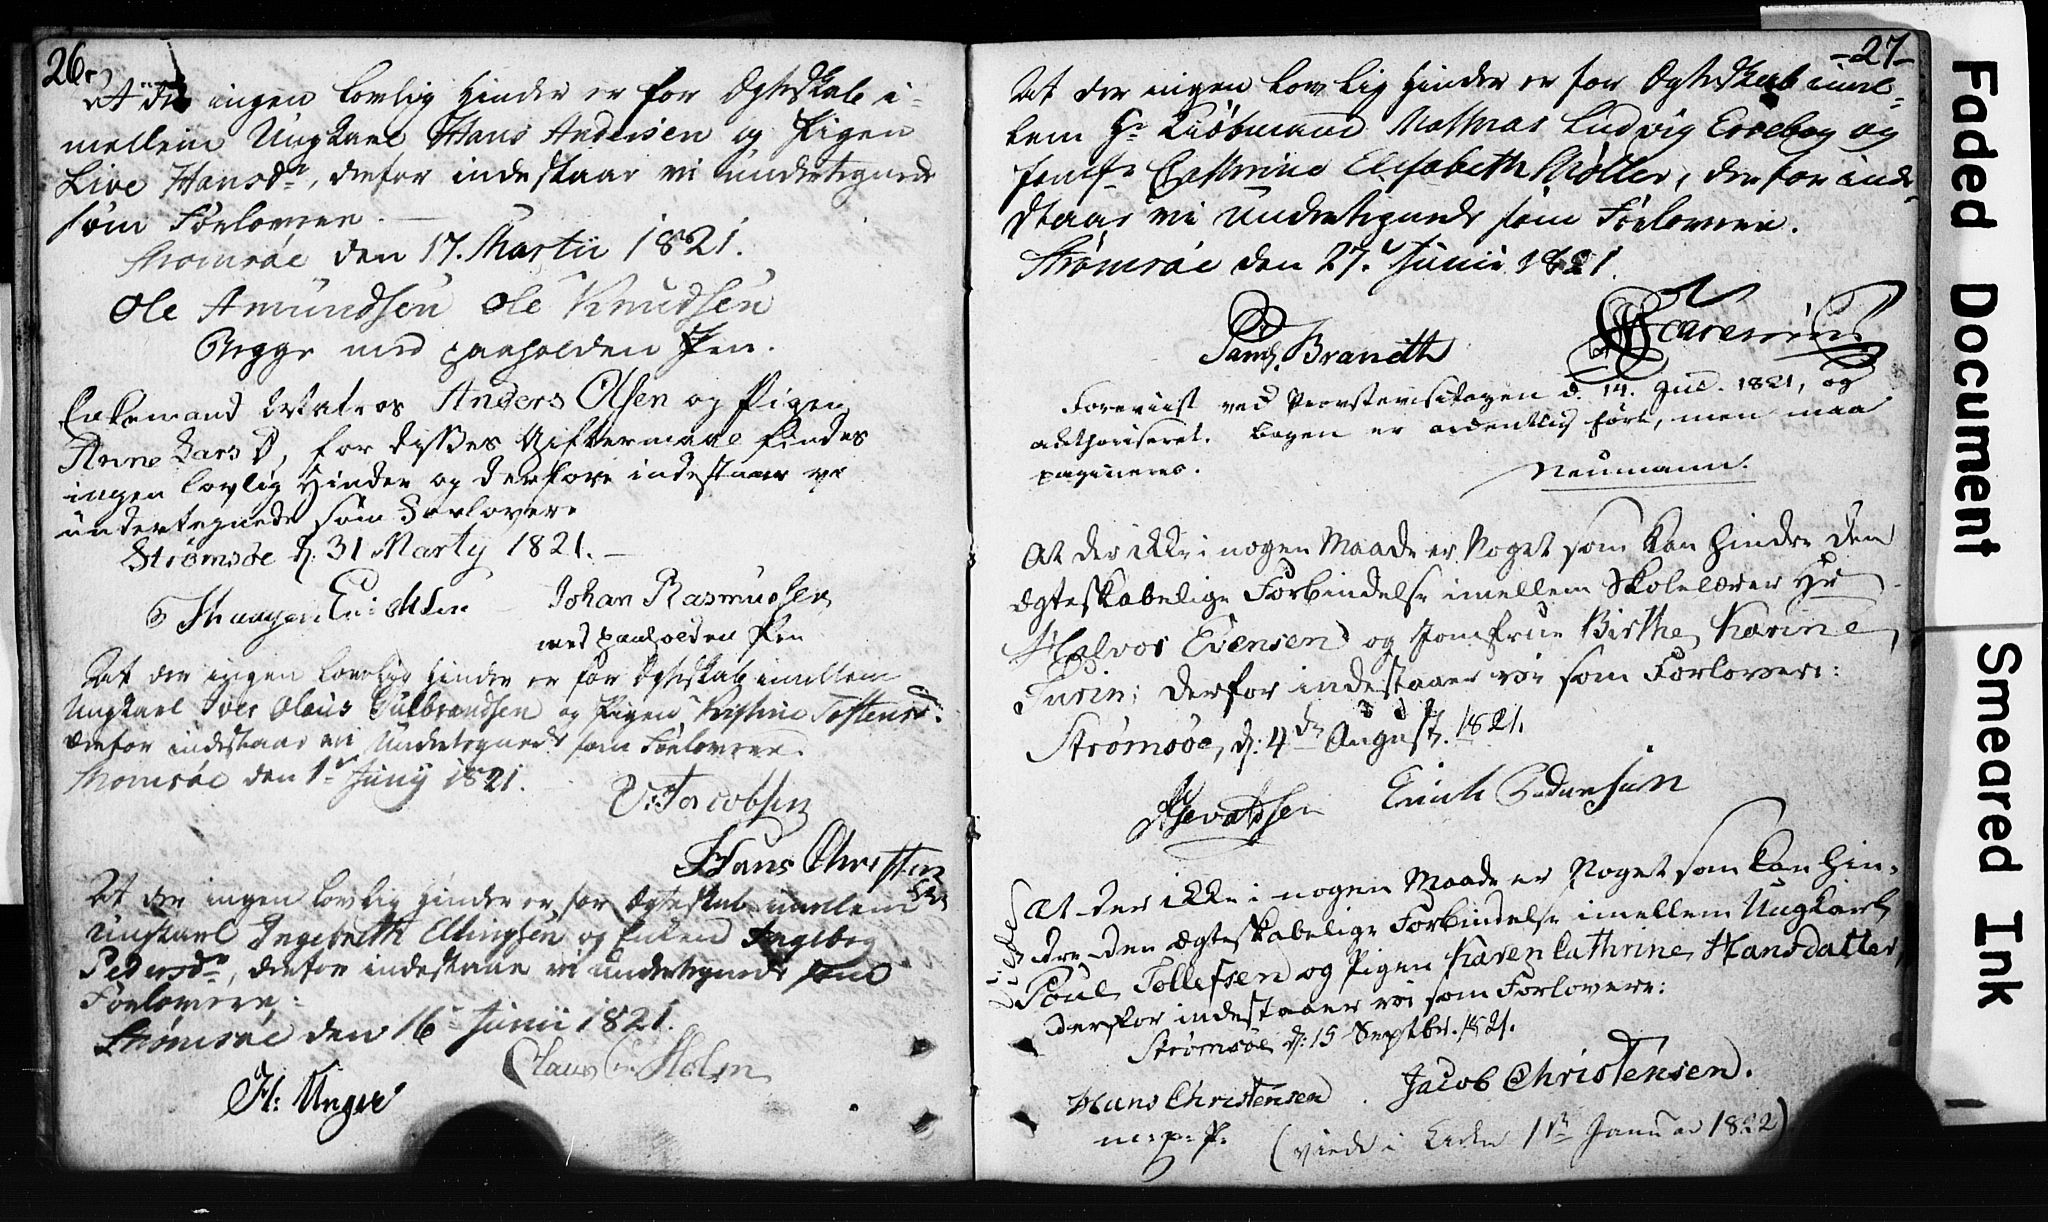 26.
At der ingen lovlig Hinder er for Ægteskab i-
mellem Ungkarl Hans Andersen og Pigen
Live Hansdr, derfor indestaar vi undertegnede
som Forlovere.
Strømsøe den 17. Martii 1821.
Ole Amundsen Ole Knudsen
Begge med paaholden Pen.
Enkemand Matros Anders Olsen og Pigen
Anne Lars D, for disses Giftermaal findes
ingen lovlig Hinder og derfore indestaaer vi
undertegnede som Forlovere
Strømsøe d: 31 Marty 1821.
Erichsen Johan Rasmussen
med paaholden Pen
At der ingen lovlig Hinder er for Ægteskab imellem
Ungkarl Iver Olaus Gulbrandsen og Pigen Kistine Tostensd.
derfor indestaar vi Undertegnede som Forlovere.
Strømsøe den 1ste Junij 1821.
Jacobsen
Hans Christen
sen
At der ingen lovlig Hinder er for Ægteskab imellem
Ungkarl Ingebreth Ellingsen og Enken Ingebog
Pedersdr, derfor indestaae vi undertegnede som
Forlovere,
Strømsøe den 16 Junii 1821.
Claus Holm
H: Unger
-27-
At der ingen Lovlig Hinder er for Ægteskab imel-
lem Hr Kiøbmand Mathias Ludvig Erreboy og
Jomfr Cathrine Elisabeth Møller, derfor inde-
staar vi Undertegnede som Forlovere.
Strømsøe den 27. Junii 1821.
Saml. Brandth
Foreviist ved Provstevisitazen d. 14. Jul. 1821, og
authoriseret. Bogen er ordentlig ført, men maa
pagineres.
Neumann.
At der ikke i nogen Maade er Noget som kan hindre den
ægteskabelige Forbindelse imellem Skolelærer Hr
Halvor Evensen og Jomfrue Birthe Karine
Turin; derfor indestaaer vi som Forlovere:
Strømsøe, d: 4de August. 1821.
Erich
At der ikke i nogen Maade er Noget som kan hin-
dre den ægteskabelige Forbindelse imellem Ungkarl
Poul Tollefsen og Pigen Karen Cathrine Hansdatter,
derfor indestaaer vi som Forlovere:
Strømsøe d: 15 Septbr. 1821.
Hans Christensen Jacob Christensen.
m: p: P. (viede i Kirken 1ste Januar 1822)
Faded Document
Smeared Ink